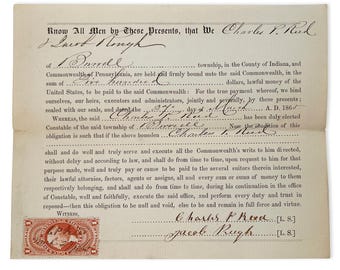 Know All Men by These Presents, that We Charles P. Reed
& Jacob Rugh
of Burrell township, in the County of Indiana, and
Commonwealth of Pennsylvania, are held and firmly bound unto the said Commonwealth, in the
sum of Five hundred dollars, lawful money of the
United States, to be paid to the said Commonwealth: For the true payment whereof, we bind
ourselves, our heirs, executors and administrators, jointly and severally, by these presents;
sealed with our seals, and dated the day of March A. D. 186
Whereas, the said Charles P. Reed has been duly elected
Constable of the said township of Burrell Now the condition of this
obligation is such that if the above bounden Charles P. Reed
shall and do well and truly serve and execute all the Commonwealth's writs to him directed,
without delay and according to law, and shall do from time to time, upon request to him for that
purpose made, well and truly pay or cause to be paid to the several suitors therein interested,
their lawful attorney, factors, agents or assigns, all and every sum or sums of money to them
respectively belonging, and shall and do from time to time, during his continuation in the office
of Constable, well and faithfully execute and perform all and every duty and trust in him
reposed—then this obligation to be null and void, or else to be and remain in full force and virtue.
Witness,
Charles P. Reed [L. S.]
Jacob Rugh [L. S.]